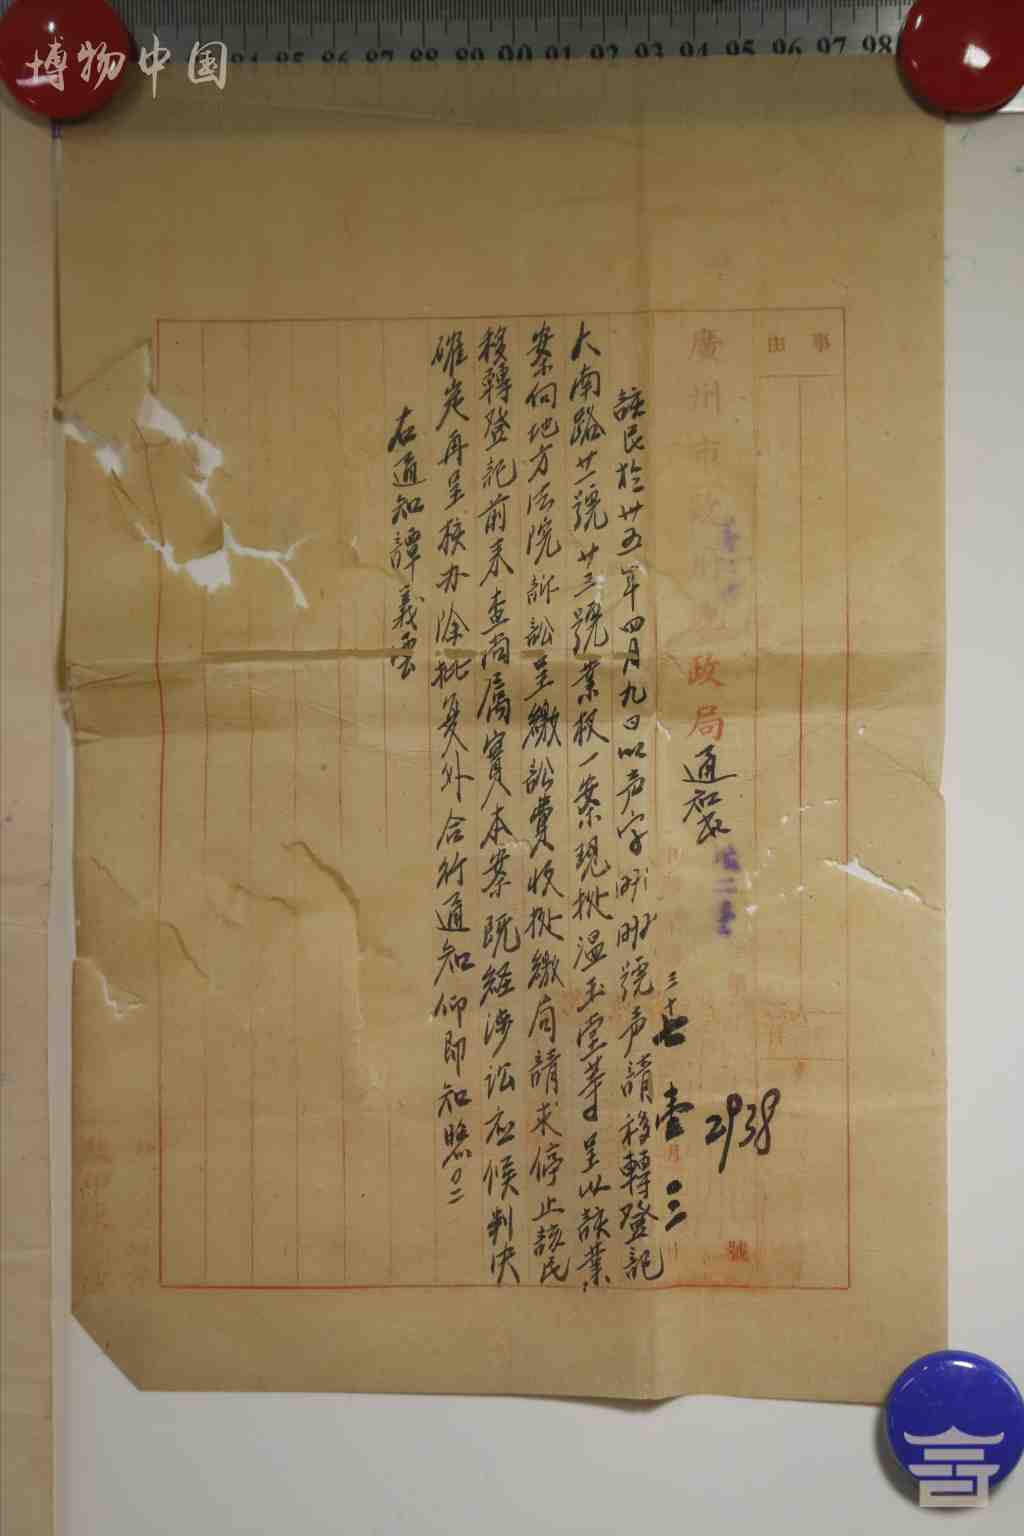 博物中国
84 85 86 87 88 89 90 91 92 93 94 95 96 97 98
事由
廣州市政府地政局通知
2938
號
三十七 壹月
該民於廿五年四月九日以声字 號声請移轉登記
大南路廿一號廿三號業权一案現據温玉堂等呈以該業
案向地方法院訴訟呈繳訟費收據繳局請求停止該民
移轉登記前来查尚属實本案既經涉訟应候判决
確定再呈核办除批复外合行通知仰即知照
右通知譚義雲